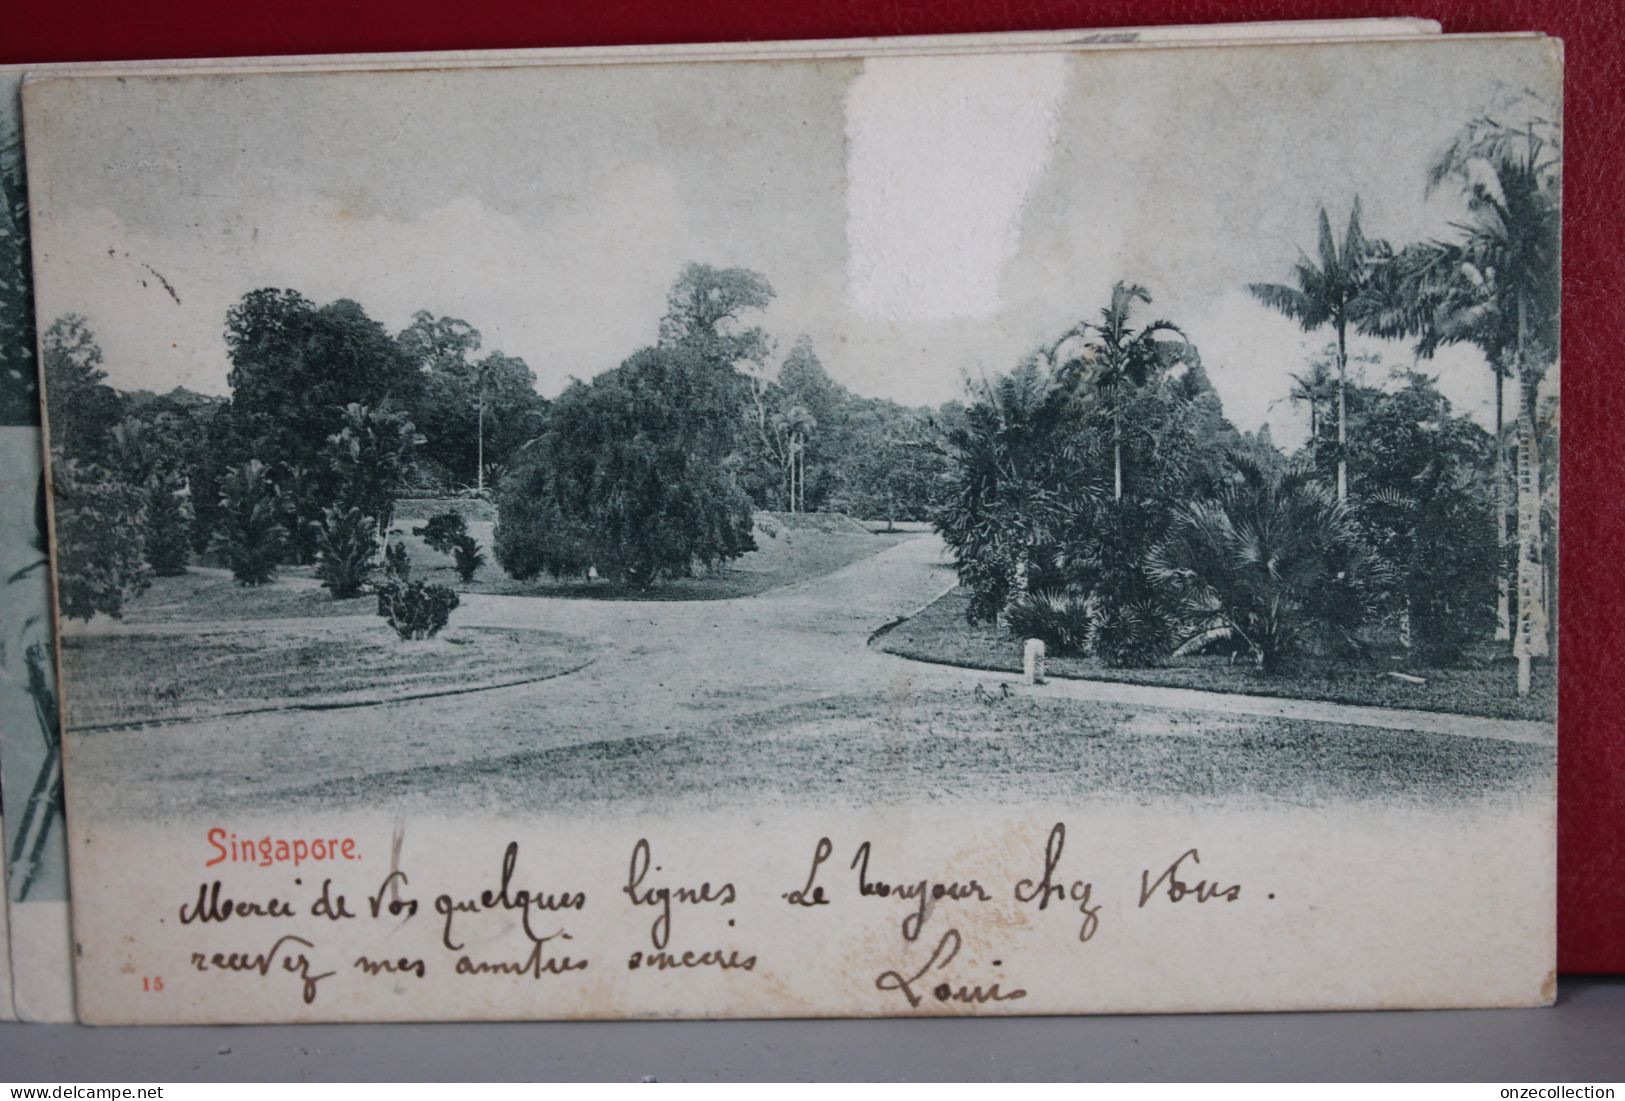 Singapore.
Merci de Vos quelques lignes Le bonjour chez Vous.
recevez mes amitiés sincères
Louis
15
www.delcampe.net
onzecollection